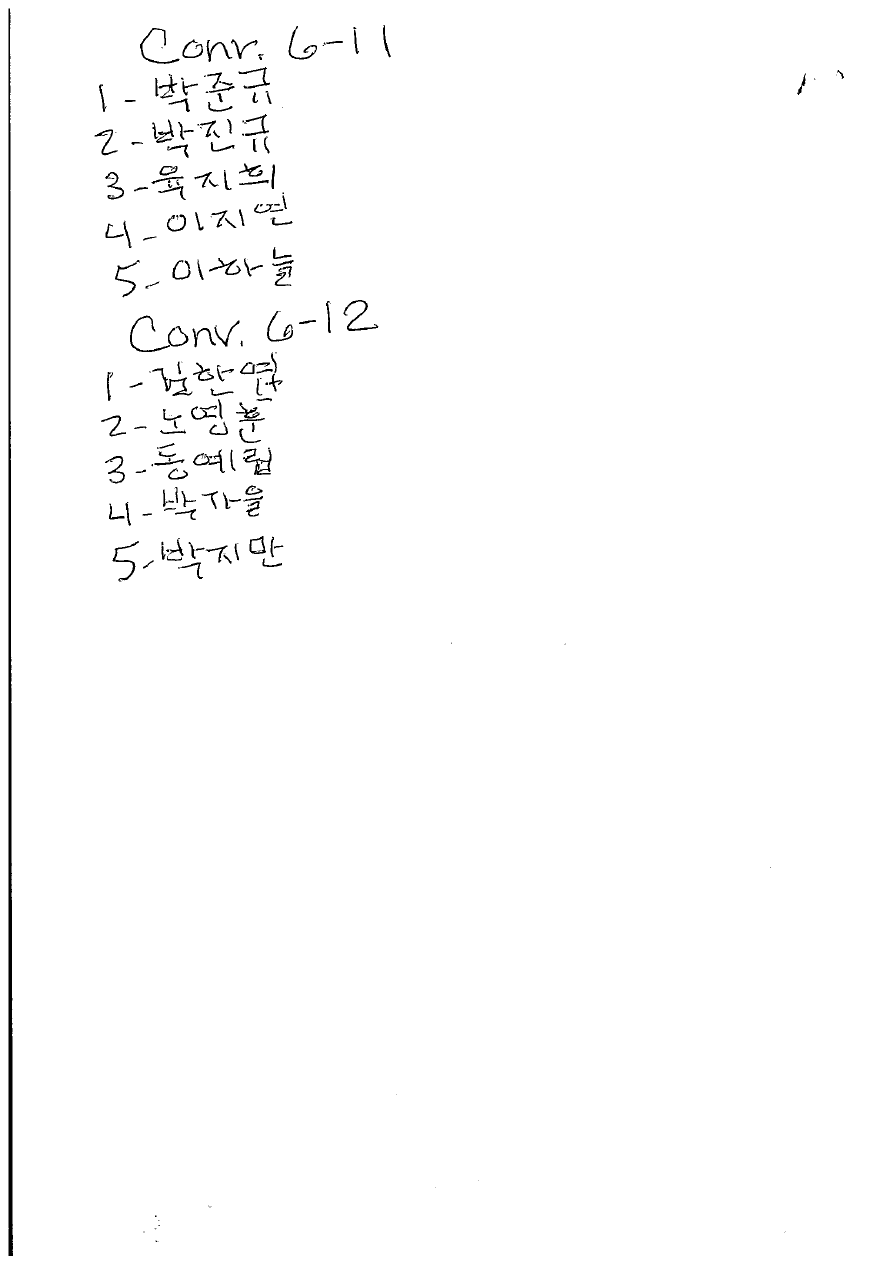 Conv. 6-11
1-박준규
2-박진규
3-육지희
4-이지연
5-이하늘
Conv. 6-12
1-김한엽
2-노영훈
3-동예림
4-박가을
5-박지만